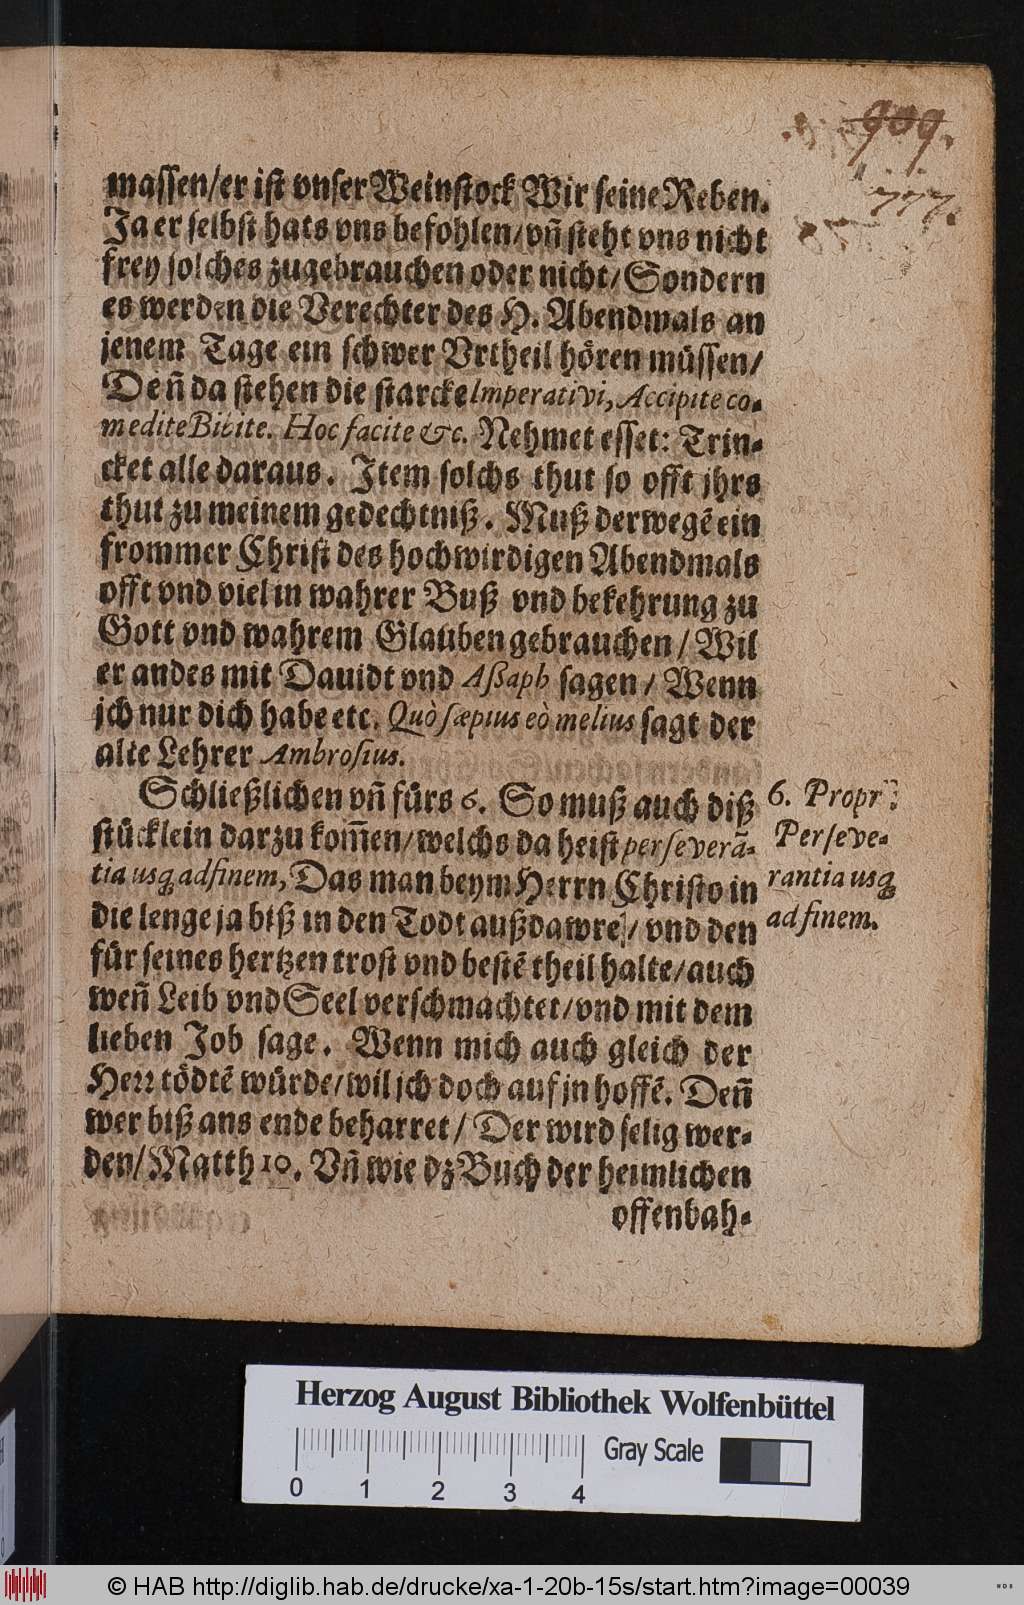 909.
777.
massen/er ist vnser Weinstock Wir seine Reben.
Ja er selbst hats vns befohlen/vñ steht vns nicht
frey solches zugebrauchen oder nicht/Sondern
es werden die Verechter des H. Abendmals an
jenem Tage ein schwer Vrtheil hören müssen/
Deñ da stehen die starcke Imperativi, Accipite co-
medite Bibite. Hoc facite &c. Nehmet esset: Trin-
cket alle daraus. Item solchs thut so offt jhrs
thut zu meinem gedechtniß. Muß derwegē ein
frommer Christ des hochwirdigen Abendmals
offt vnd viel in wahrer Buß vnd bekehrung zu
Gott vnd wahrem Glauben gebrauchen/Wil
er andes mit Dauidt vnd Aßaph sagen/Wenn
jch nur dich habe etc. Quò sæpius eò melius sagt der
alte Lehrer Ambrosius.
Schließlichen vñ fürs 6. So muß auch diß
stücklein darzu kom̃en/welchs da heist perseverã-
tia usq; ad finem, Das man beym Herrn Christo in
die lenge ja biß in den Todt außdawre/vnd den
für seines hertzen trost vnd bestē theil halte/auch
weñ Leib vnd Seel verschmachtet/vnd mit dem
lieben Job sage. Wenn mich auch gleich der
Herr tödtē würde/wil jch doch auf jn hoffē. Deñ
wer biß ans ende beharret/Der wird selig wer-
den/Matth 10. Vñ wie dz Buch der heimlichen
offenbah-
6. Propr
Perseve-
rantia usq;
ad finem.
Herzog August Bibliothek Wolfenbüttel
Gray Scale
0 1 2 3 4
© HAB http://diglib.hab.de/drucke/xa-1-20b-15s/start.htm?image=00039